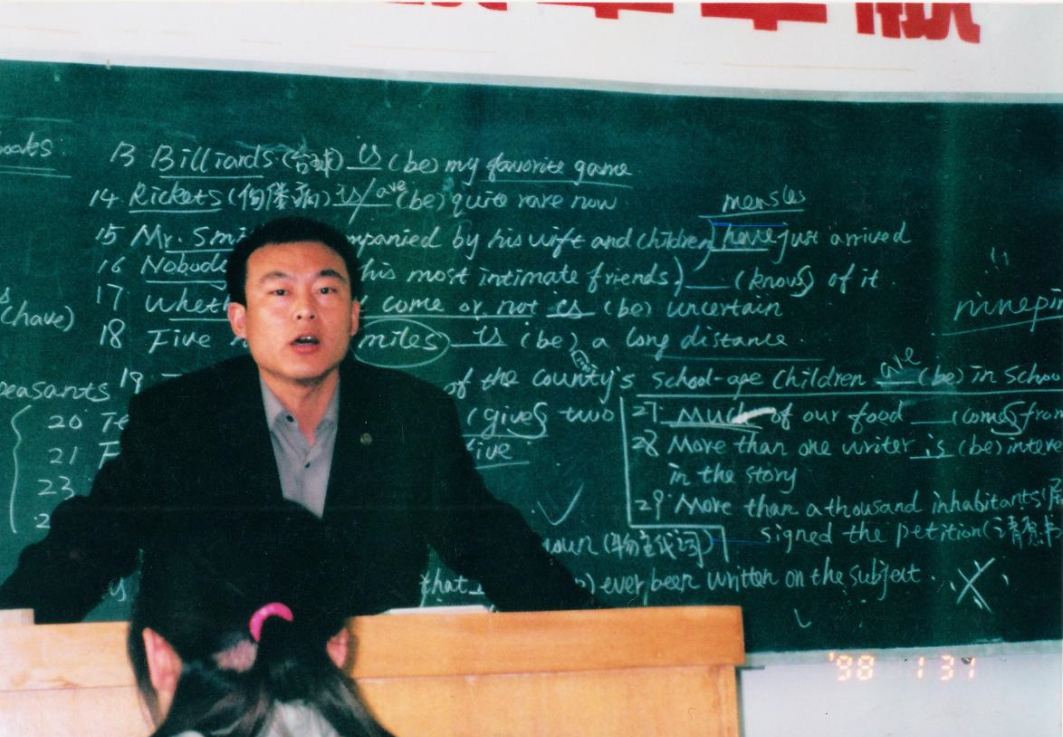 13 Billiards (台球) is (be) my favorite game
14. Rickets (佝偻病) is/are (be) quite rare now
measles
15 Mr. Smi mpanied by his wift and children have just arrived
16 Nobody his most intimate friends) __ (knows) of it.
17 Wheth come or not is (be) uncertain
(have)
18 Five miles is (be) a long distance.
peasants 19 of the county's school-age children are (be) in schoo
20 Te (gives) two
27. Much of our food __ (comes) from
21 F ive
28 More than one writer is (be) intere
in the story
23
29 More than a thousand inhabitants
signed the petition (请愿书
noun (物主代词)
that ever been written on the subject.
'98 1 31